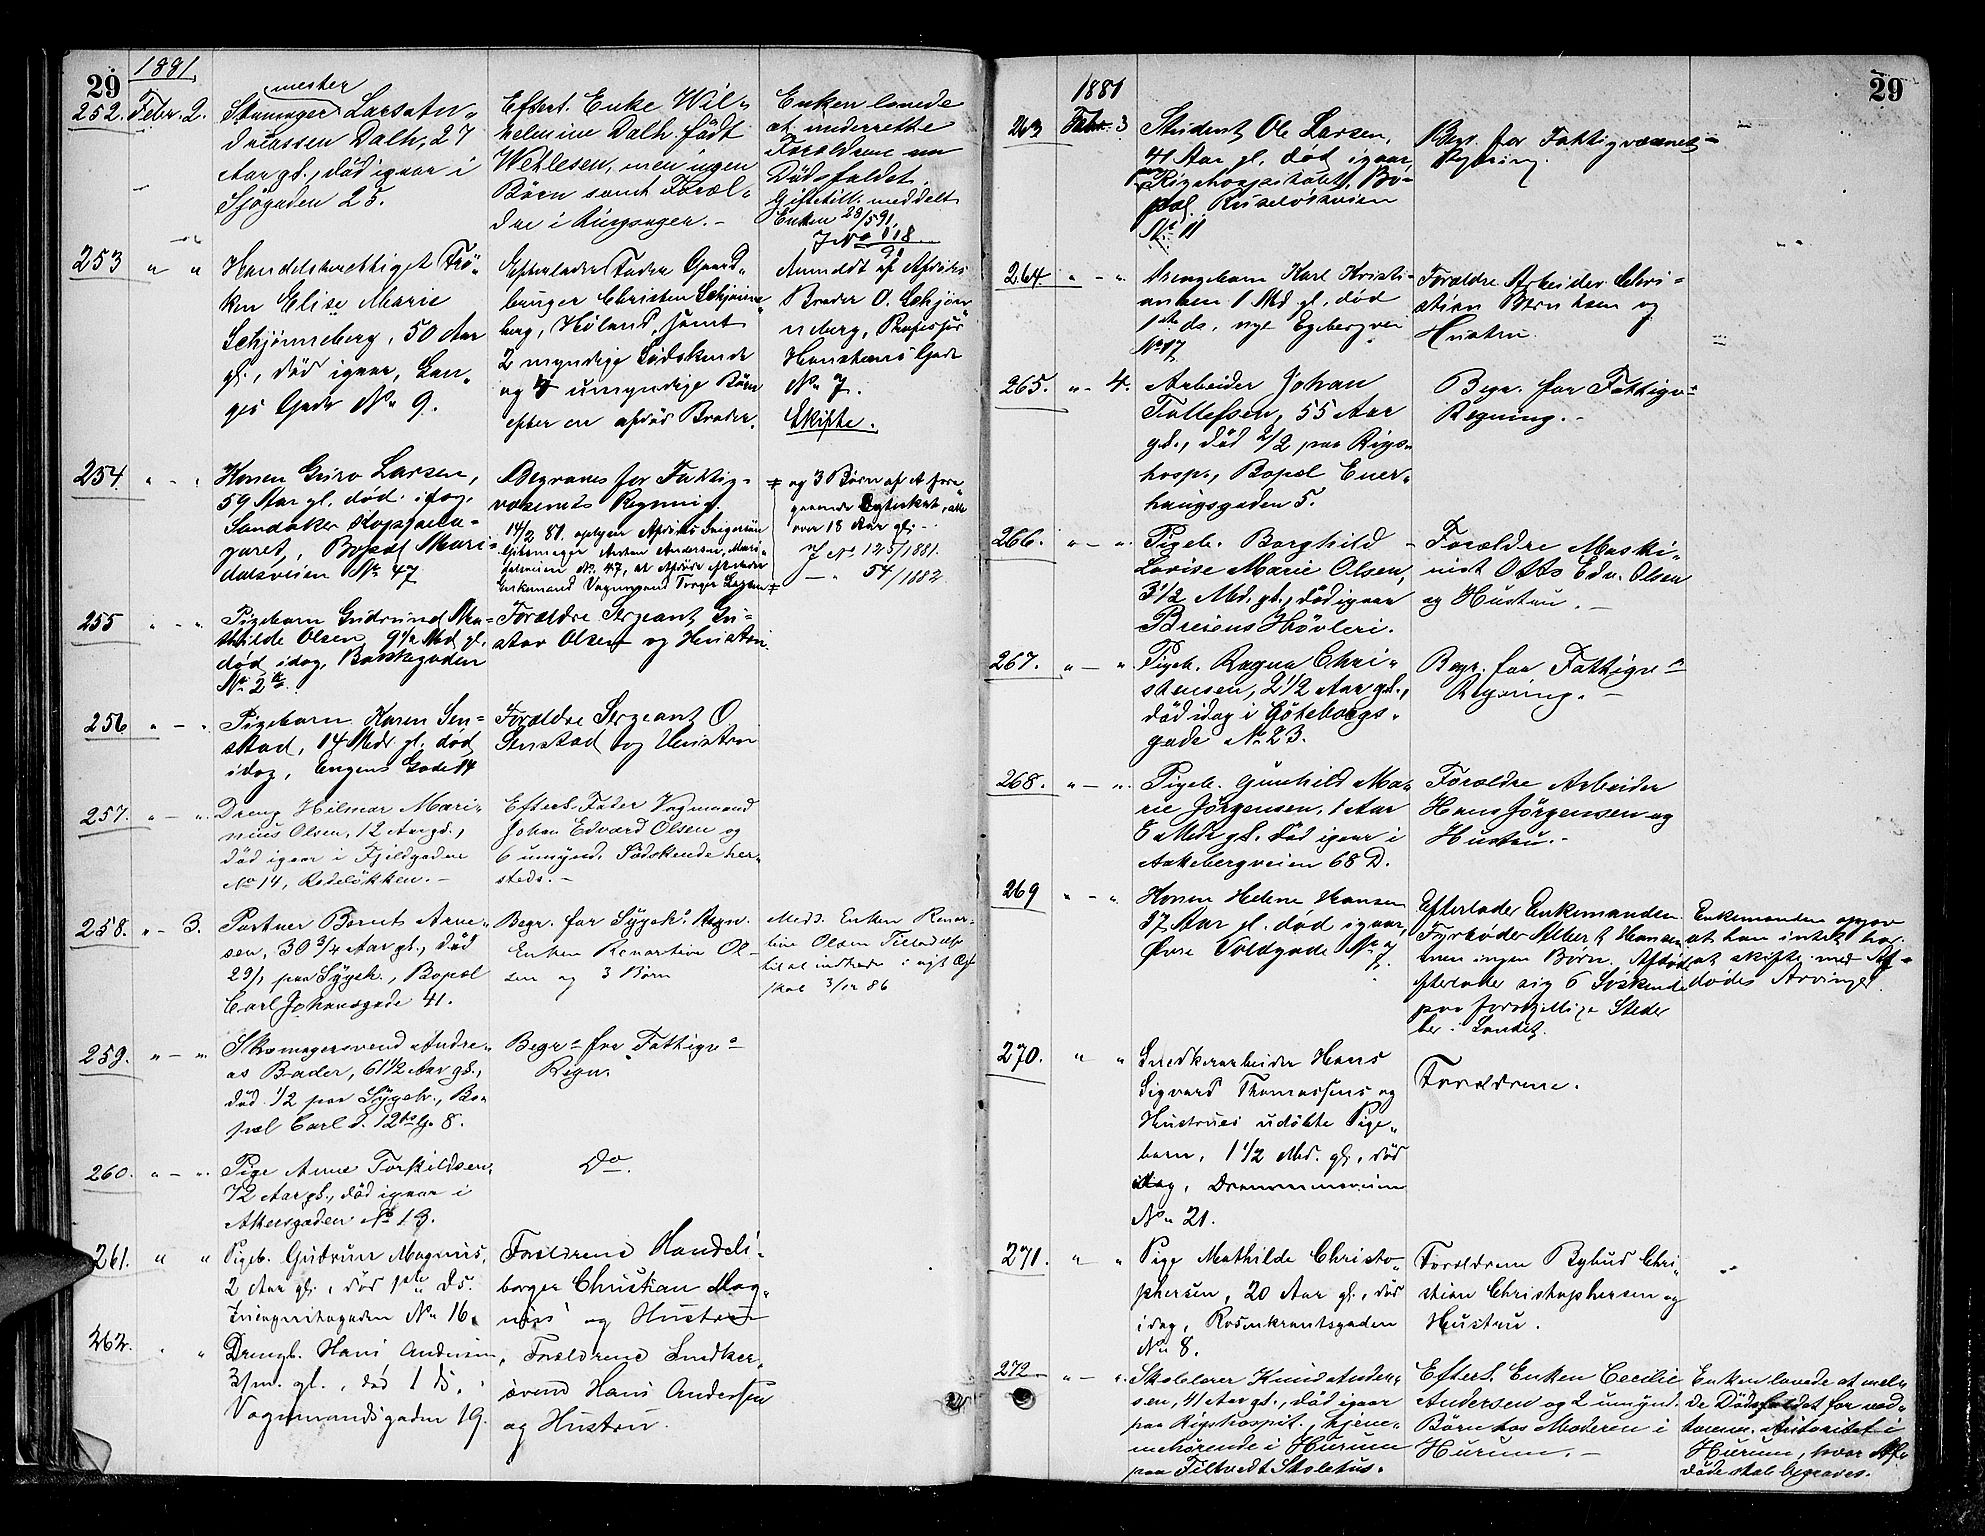 29
1881.
252. Febr. 2.
mester
Lars An-
dreassen Dalh, 27
Aar gl., död igaar i
Sjögaden 25.
Efterl. Enke Wil-
helmine Dalh, födt
Wetlesen, men ingen
Börn samt Foræl-
dre i
Enken lovede
at underrette
Forældrene om
Dödsfaldet.
meddelt
Enken 28/5 91.
J No 118
91
253 " "
Handelsberettiget Frö-
ken Elise Marie
Schjönneberg, 50 Aar
gl., död igaar, Lan-
ges Gade No 9.
Efterlader Fader Gaard-
bruger Christen Schjönne-
berg, Höland, samt
2 myndige Södskende
og 4 umyndige Börn
efter en afdöd Broder.
Anmeldt af Afdödes
Broder O. Schjön-
neberg, Professor
Hansteens Gade
No 7.
Skifte.
254. " - "
Konen Guro Larsen,
59 Aar gl. död idag.
Sandaker
Bopæl Mari-
dalsveien No 47
Begraves for Fattig-
væsenets Regning.
14/2 81. oplyser Afdödes Svigersön
Anton Andersen, Mari-
dalsveien No. 47, at Afdöde efterlader
Enkemand Vognmand Larsen ≠
≠ og 3 Börn af et fore
gaaende Ægteskab, alle
over 18 Aar gl. -
J No 125/1881.
- " 54/1882.
255 " - "
Pigebarn Gudrund Ma-
thilde Olsen 9 1/2 Md gl.
död idag, Bakkegaden
No 2 B.
Forældre Sergeant Gu-
stav Olsen og Hustru.
256 " - "
Pigebarn Karen Gen-
stad, 14 Mdr gl. död
idag, Engens Gade 14
Forældre Sergeant O.
Genstad og Hustru
257. " - ".
Dreng Hilmar Mari-
nius Olsen, 12 Aar gl.,
död igaar i Fjeldgaden
No 14, Rodelökken. -
Efterl. Fader Vognmand
Johan Edvard Olsen og
6 umynd. Södskende her-
steds. -
258. " - 3.
Portner Bernt Arne-
sen, 30 3/4 Aar gl., död
29/1 paa Sygeh., Bopæl
Carl Johansgade 41.
Begr. for Sygeh. Regn.
Enken Renartine Ol-
sen og 3 Börn
Medd. Enken Renar-
tine Olsen Tilladelse
til at indtræde i nyt Æg-
skab 3/12 86
259. " - ".
Skomagersvend Andre-
as Brader, 61 1/2 Aar gl.,
död 1/2 paa Sygeh., Bo-
pæl Carl d. 12tes G. 8.
Begr. for Fattigv.
Regn.
260. " - ".
Pige Anne Torkildsen,
72 Aar gl., död igaar i
Akersgaden No 13.
Do.
261. " "
Pigeb. Gudrun Magnus,
2 Aar gl., död 1ste ds.
No 16.
Forældrene Handels-
borger Christian Mag-
nus og Hustru
262. " "
Drengb. Hans Andersen,
3/m. gl., död 1 ds.
Vognmandsgaden 19.
Forældrene Snedker-
svend Hans Andersen
og Hustru.
29
1881
263 Febr. 3
Student Ole Larsen,
41 Aar gl. död igaar,
paa Rigshospitalet, Bo-
pæl Ruselökveien
No 11
Begr. for Fattigvæsenets
Regning.
264. " - ".
Drengebarn Karl Kristi-
ansen 1 Md gl. död
1ste ds. nye Egebergvei
No 17
Forældre Arbeider Chri-
stian Berntsen og
Hustru.
265. " - 4.
Arbeider Johan
Tollefsen, 55 Aar
gl., död 2/2 paa Rigs-
hosp., Bopæl Ener-
haugsgaden 5.
Begr. for Fattigv.
Regning. -
266. " - ".
Pigeb. Borghild
Lovise Marie Olsen,
3 1/2 Md. gl., död igaar
Breiens Hövleri.
Forældre Maski-
nist Otto Edv. Olsen
og Hustru. -
267. " - "
Pigeb. Ragna Chri-
stensen, 2 1/2 Aar gl.,
död idag i Göteborgs-
gade No 23.
Begr. for Fattigv.
Regning. -
268. " - ".
Pigeb. Gunhild Ma-
rie Jörgensen, 1 Aar
8 Mdr gl. död igaar i
Aakebergveien 68 D.
Forældre Arbeider
Hans Jörgensen og
Hustru. -
269 " - "
Konen Helene Hansen
37 Aar gl. död igaar,
Övre Voldgade No 7
Efterlader Enkemanden
Fyrböder Albert Hansen
men ingen Börn. Afdöde
efterlader sig 6 Söskende
paa forskjellige Steder
her i Landet.
Enkemanden opgav
at han intet har
at skifte med Af-
dödes Arvinger.
270. " "
Snedkerarbeider Hans
Sigvard Thomassens og
Hustrues udöbte Pige-
barn, 1 1/2 Md. gl., död
idag, Drammensveien
No 21.
Forældrene.
271. " "
Pige Mathilde Christo-
phersen, 20 Aar gl., död
idag, Rosenkrantsgaden
No 8.
Forældrene Bybud Chri-
stian Christophersen og
Hustru.
272 " - ".
Skolelærer Knud Ander-
sen, 41 Aar gl., död igaar
paa Rigshospit., hjem-
mehörende i Hurum
paa Filtvedt Skolehus.
Efterl. Enken Cecilie
Andersen og 2 umynd.
Börn hos Moderen i
Hurum. -
Enken lovede at mel-
de Dödsfaldet for ved-
komm. Autoritet i
Hurum, hvor Af-
döde skal begraves.